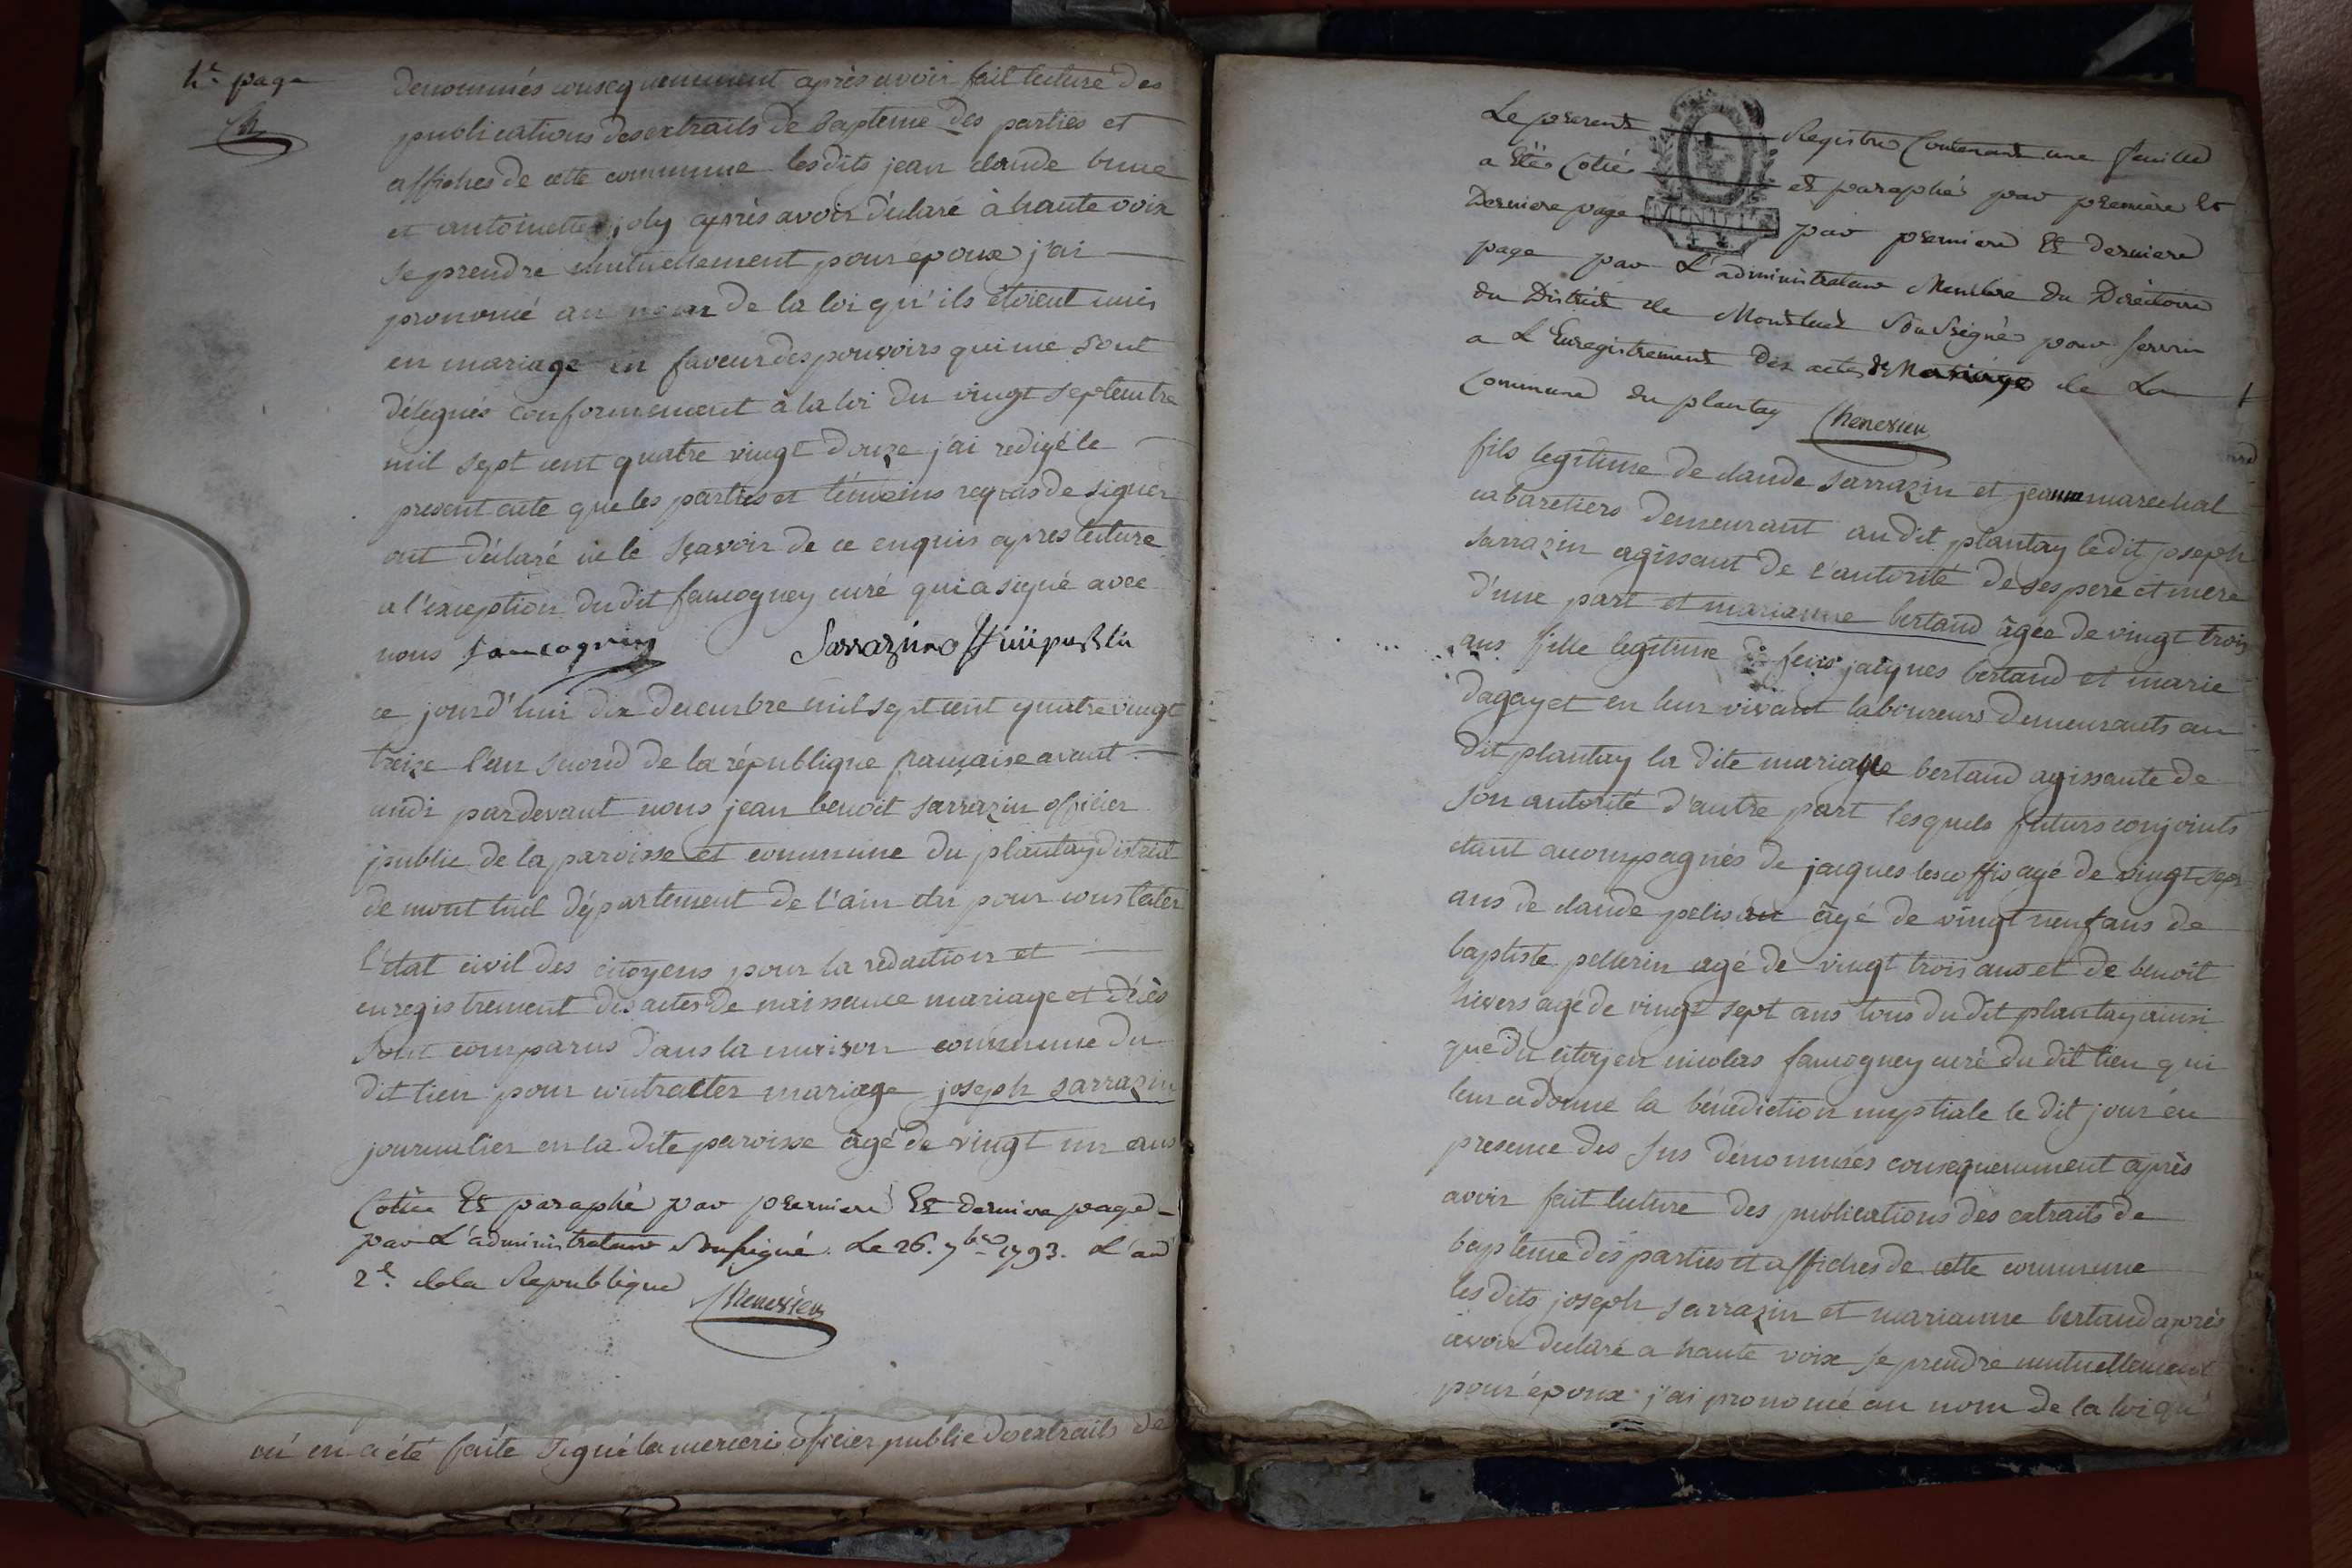 4e page
denommés consequemment après avoir fait lecture des
publications des extraits de bapteme des parties et
affiches de cette commune lesdits jean claude
et antoinette joly après avoir déclaré à haute voix
se prendre mutuellement pour epoux j'ai
prononcé au nom de la loi qu'ils étoient unis
en mariage en faveur des pouvoirs qui me sont
délégués conformement à la loi du vingt septembre
mil sept cent quatre vingt douze j'ai redigé le
present acte que les parties et témoins requis de signer
ont déclaré ne le sçavoir de ce enquis apres lecture
a l'exception du dit faucogney curé qui a signé avec
nous faucogney Sarrazin off public
ce jourd'hui dix decembre mil sept cent quatre vingt
treize l'an second de la république francaise avant
midi pardevant nous jean benoit sarrazin officier
public de la paroisse et commune du plantay district
de mont luel département de l'ain élu pour constater
l'état civil des citoyens pour la redaction et
enregistrement des actes de naissance mariage et décès
sont comparus dans la maison commune du
dit lieu pour contracter mariage joseph sarrazin
journalier en la dite paroisse âgé de vingt un ans
Cotée Et paraphé par premiere Et derniere page
par L'administrateur Soussigné. Le 26. 7bre 1793. L'an
2e de la Republique
Chenevier
où en a été faite signé lamercerie officier public des extraits de
Le present Registre Contenant une feuille
a Eté Cotié et paraphés par premiere Et
Derniere page par premiere Et derniere
page par L'administrateur Membre du Directoire
du District de Montluel Soussigné pour servir
a L'Enregistrement des actes de Mariage de La
Commune du plantay Chenevier
fils legitime de claude sarrazin et jeanne marechal
cabaretiers demeurant au dit plantay le dit joseph
sarrazin agissant de l'autorité de ses pere et mere
d'une part et marianne bertand âgée de vingt trois
ans fille legitime de feus jacques bertand et marie
dagayet en leur vivant laboureurs demeurants au
dit plantay la dite marianne bertand agissante de
son autorité d'autre part lesquels futurs conjoints
étant acompagnés de jacques lescoffis agé de vingt sept
ans de claude âgé de vingt neuf ans de
baptiste pellerin agé de vingt trois ans et de benoit
hivers agé de vingt sept ans tous du dit plantay ainsi
que du citoyen nicolas faucogney curé du dit lieu qui
leur a donné la bénédiction nuptiale le dit jour en
presence des sus dénommés consequemment après
avoir fait lecture des publications des extraits de
bapteme des parties et affiches de cette commune
lesdits joseph sarrazin et marianne bertand après
avoir declaré a haute voix se prendre mutuellement
pour époux j'ai prononcé au nom de la loi qu'